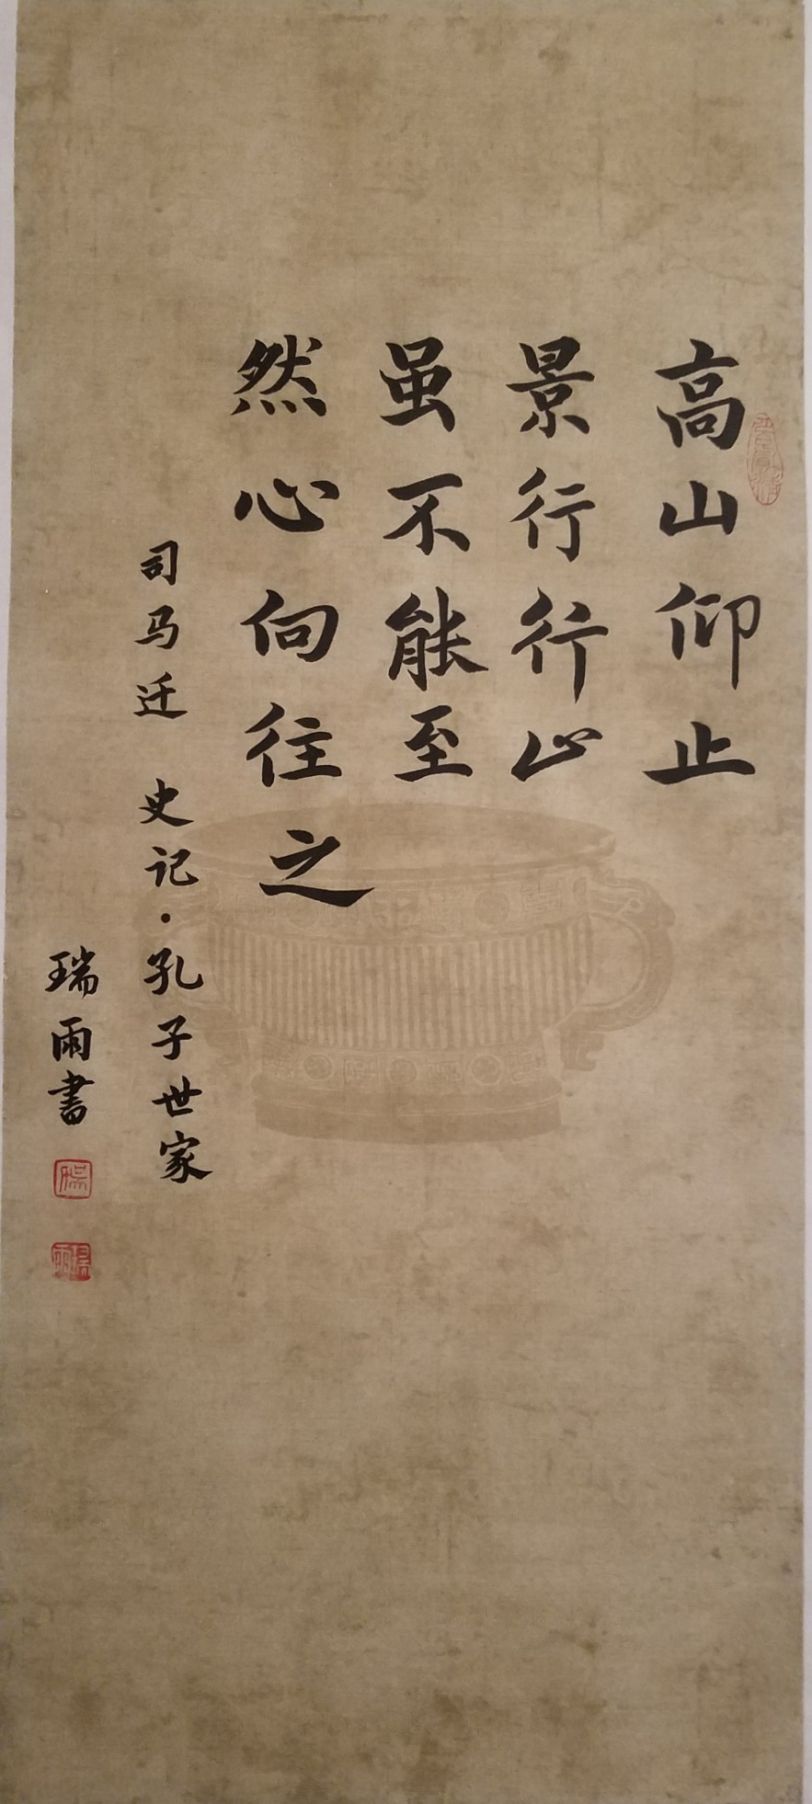 高山仰止
景行行止
虽不能至
然心向往之
司马迁 史记·孔子世家
瑞雨書